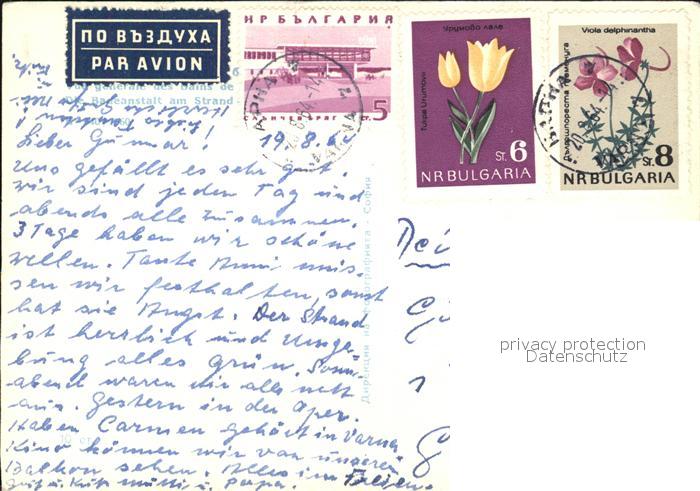 ПО ВЪЗДУХА
PAR AVION
НР БЪЛГАРИЯ
5
Кримово лале
Tulipa Urumovii
St. 6
NR BULGARIA
Viola delphinantha
St. 8
NR BULGARIA
générale des Bains de
Die Badeanstalt am Strand
Lieber Gunnar! 19.8.
Uns gefällt es sehr gut.
Wir sind jeden Tag und
abends alle zusammen.
3 Tage haben wir schöne
Wellen. Tante Anni müs-
sen wir festhalten, sonst
hat sie Angst. Der Strand
ist herrlich und Umge-
bung alles Grün. Sonn-
abend waren wir alle nett
aus. Gestern in der Oper.
Haben Carmen gehört in Varna
Kino können wir von unseren
Balkon sehen. Alles im Freien.
Mutti u. Papa.
privacy protection
Datenschutz